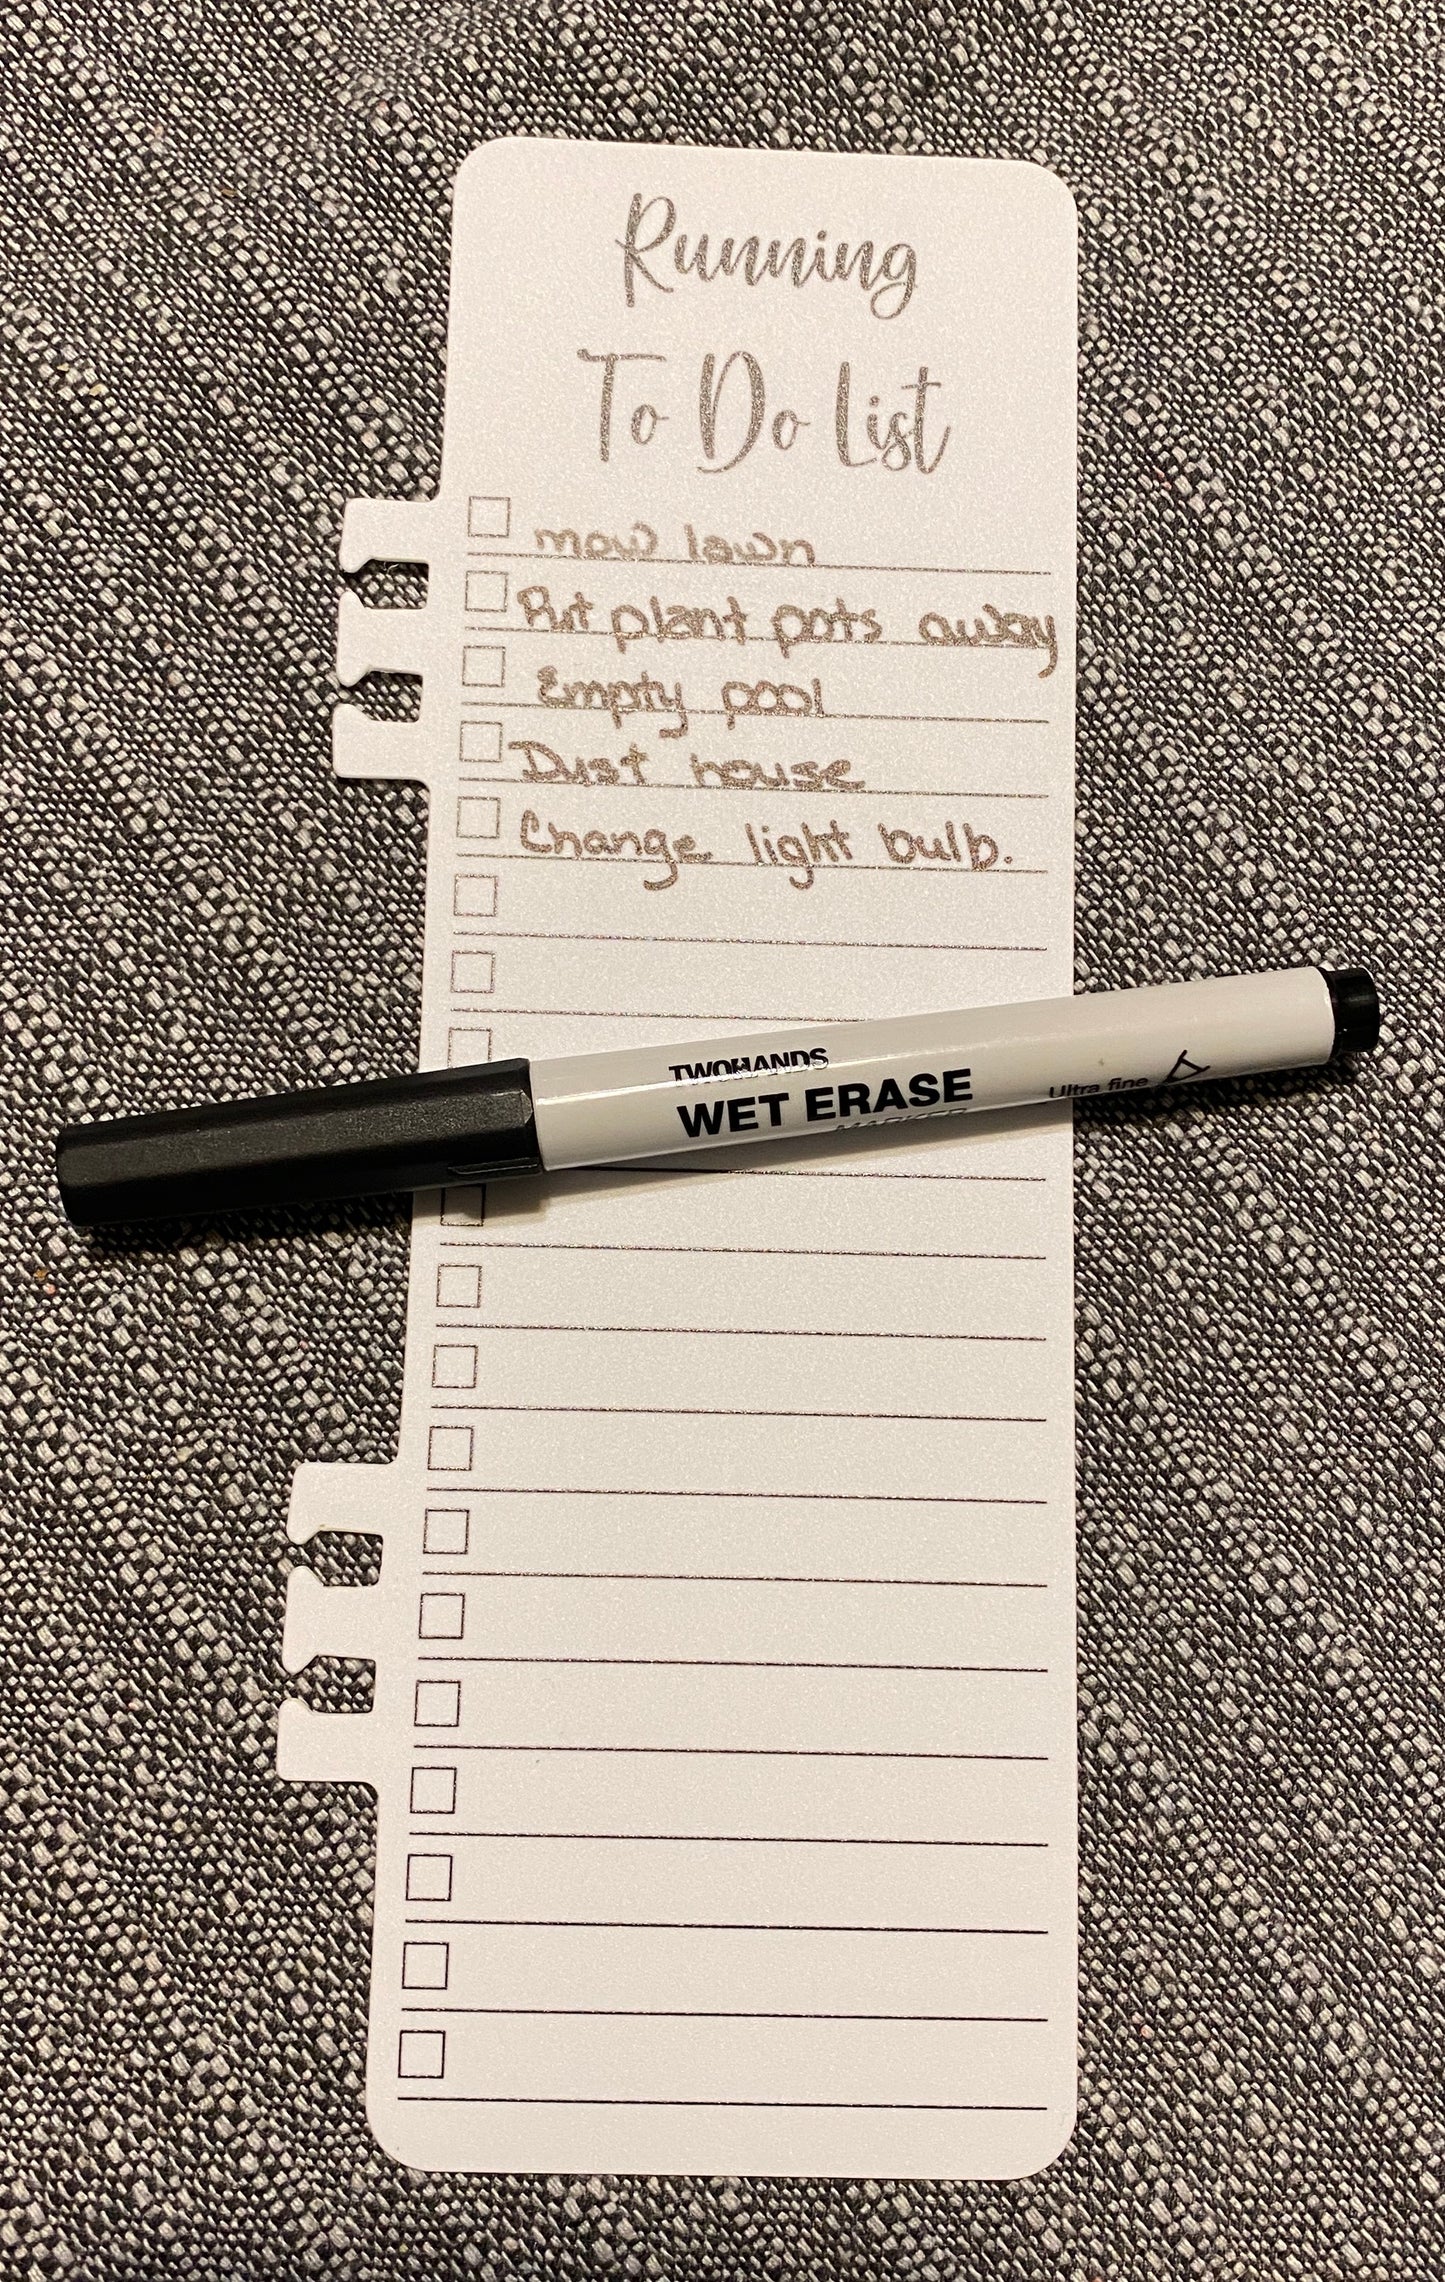 Running
To Do List
mow lawn
Put plant pots away
Empty pool
Dust house
Change light bulb.
TWOHANDS
WET ERASE
MARKER
Ultra fine